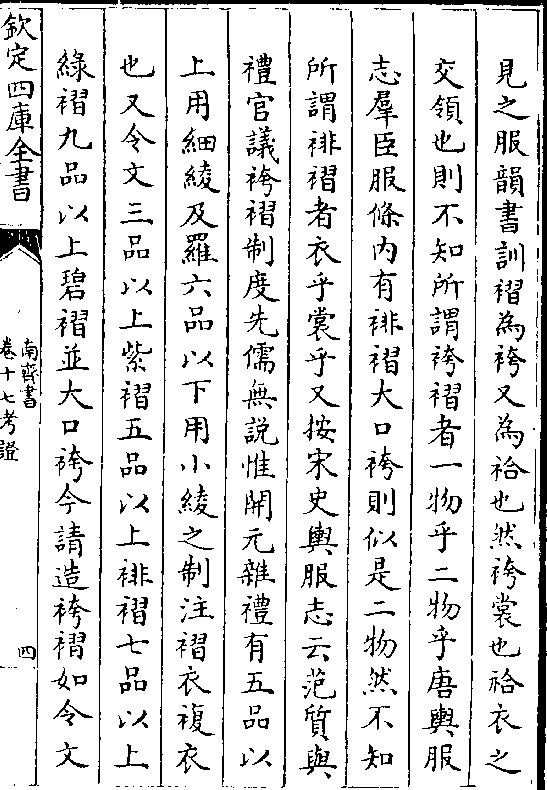 見之服韻書訓褶為袴又為袷也然袴裳也袷衣之
交領也則不知所謂袴褶者一物乎二物乎唐輿服
志羣臣服條内有緋褶大口袴則似是二物然不知
所謂緋褶者衣乎裳乎又按宋史輿服志云范質與
禮官議袴褶制度先儒無説惟開元雜禮有五品以
上用細綾及羅六品以下用小綾之制注褶衣複衣
也又令文三品以上紫褶五品以上緋褶七品以上
綠褶九品以上碧褶並大口袴今請造袴褶如令文
欽定四庫全書
南齊書
卷十七考證
四